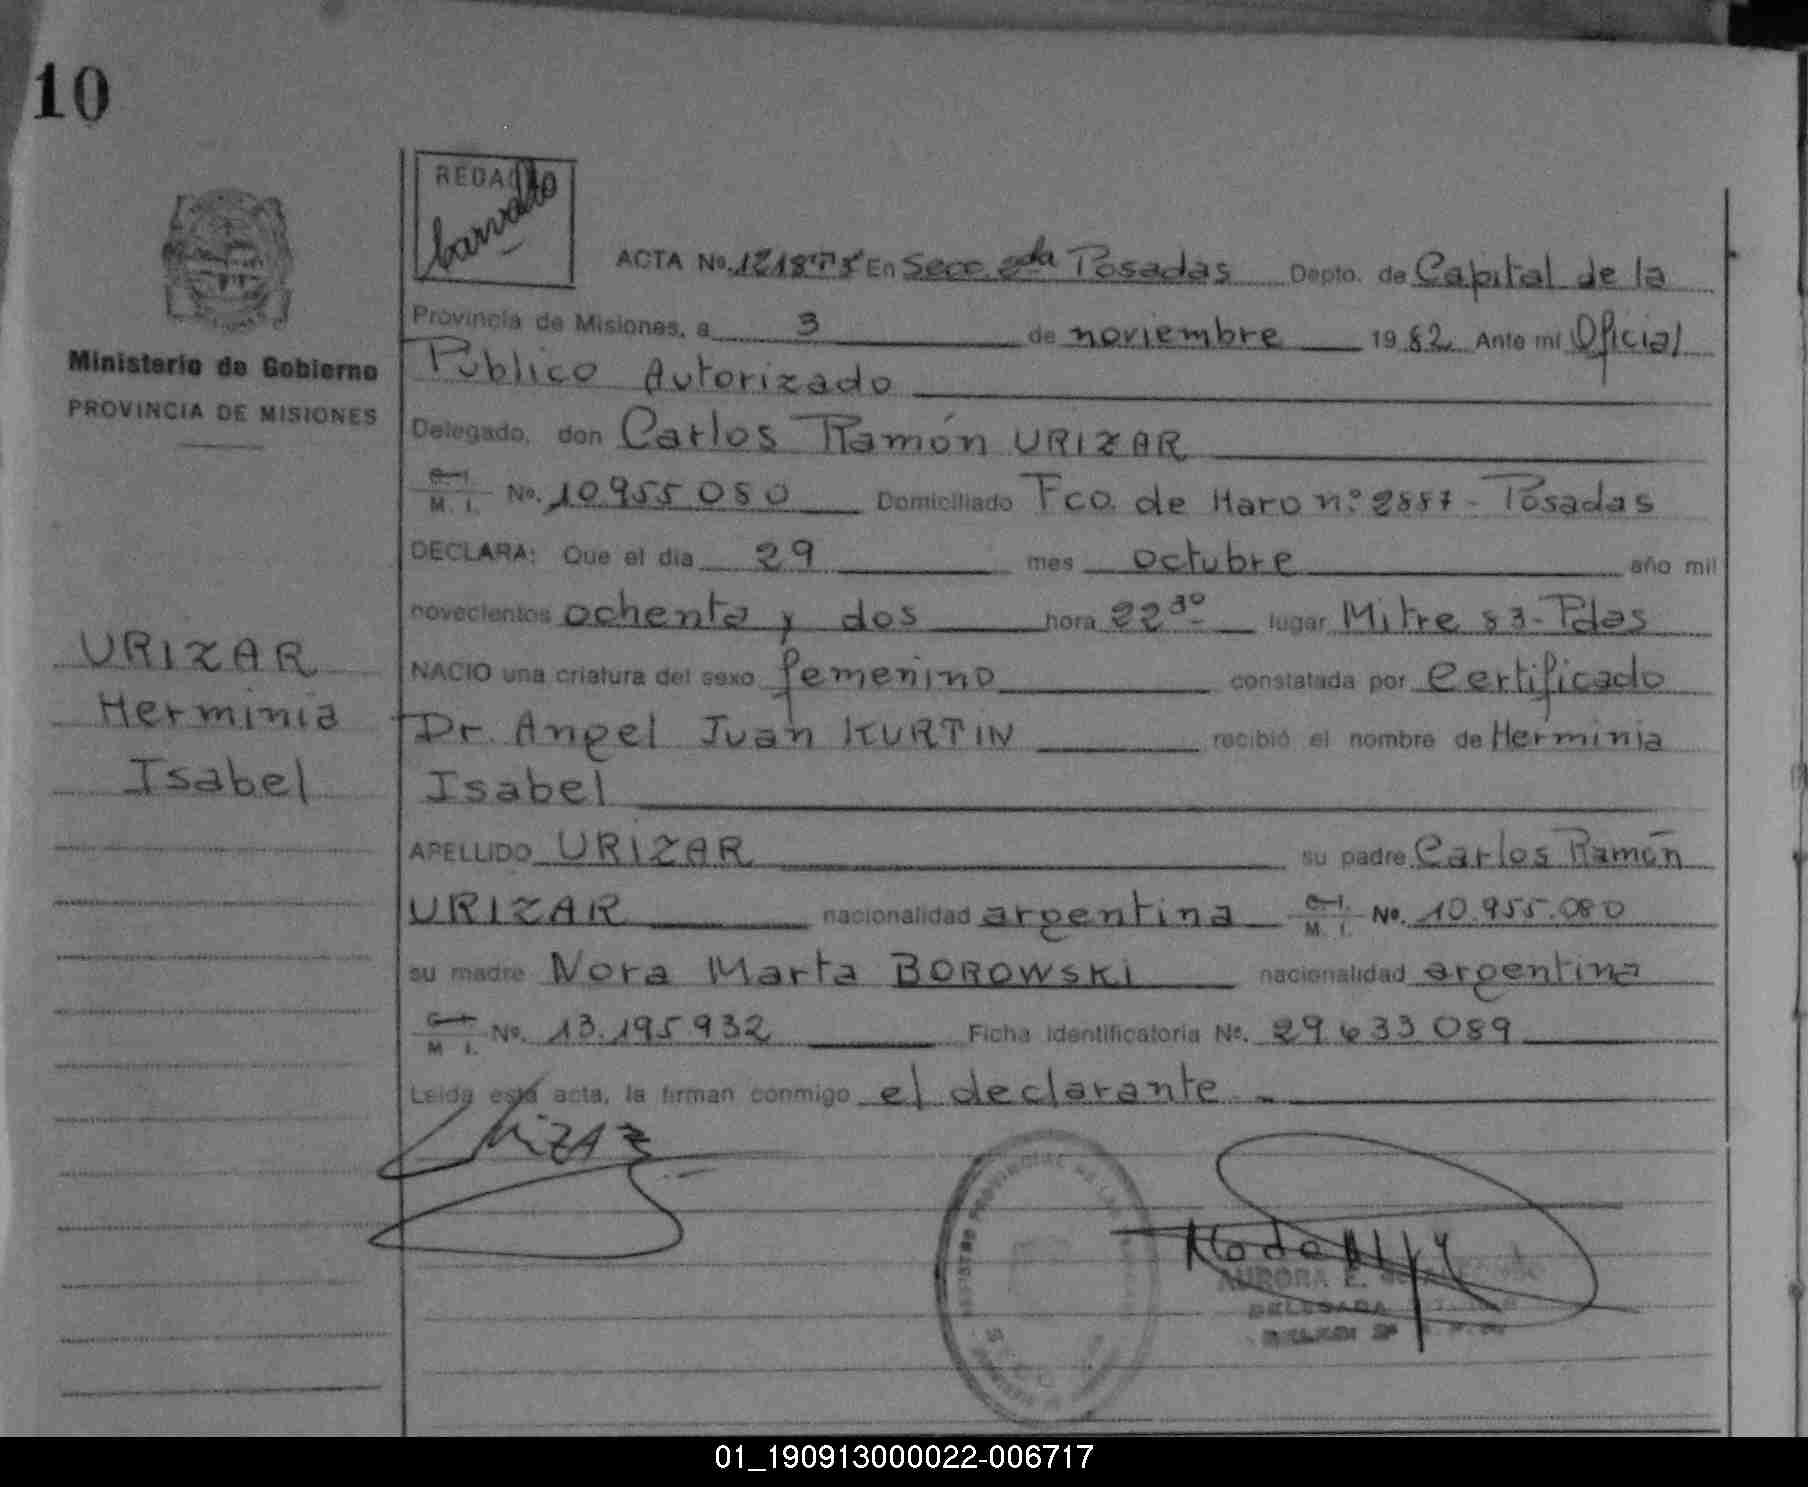 10
REDAC
barrado
ACTA No. En Secc. 2da Posadas Depto. de Capital de la
Provincia de Misiones, a 3 de noviembre 1982 Ante mi Oficial
Ministerio de Gobierno
PROVINCIA DE MISIONES
Público Autorizado
Delegado, don Carlos Ramón URIZAR
C. I.
M. I. No. 10.955.080 Domiciliado Fco. de Haro n:° 2887 - Posadas
DECLARA: Que el día 29 mes octubre año mil
novecientos ochenta y dos hora 22 30 lugar Mitre 83 - Pdas
URIZAR
Herminia
Isabel
NACIO una criatura del sexo femenino constatada por Certificado
Dr. Angel Juan KURTIN recibió el nombre de Herminia
Isabel
APELLIDO URIZAR su padre Carlos Ramón
URIZAR nacionalidad argentina C. I. M. I. No. 10.955.080
su madre Nora Marta BOROWSKI nacionalidad argentina
C. I.
M. I. No. 13.195.932 Ficha Identificatoria No. 29.633.089
Leída esta acta, la firman conmigo el declarante. -
REGISTRO PROVINCIAL DE LAS
AURORA E.
DELEGADA
01_190913000022-006717